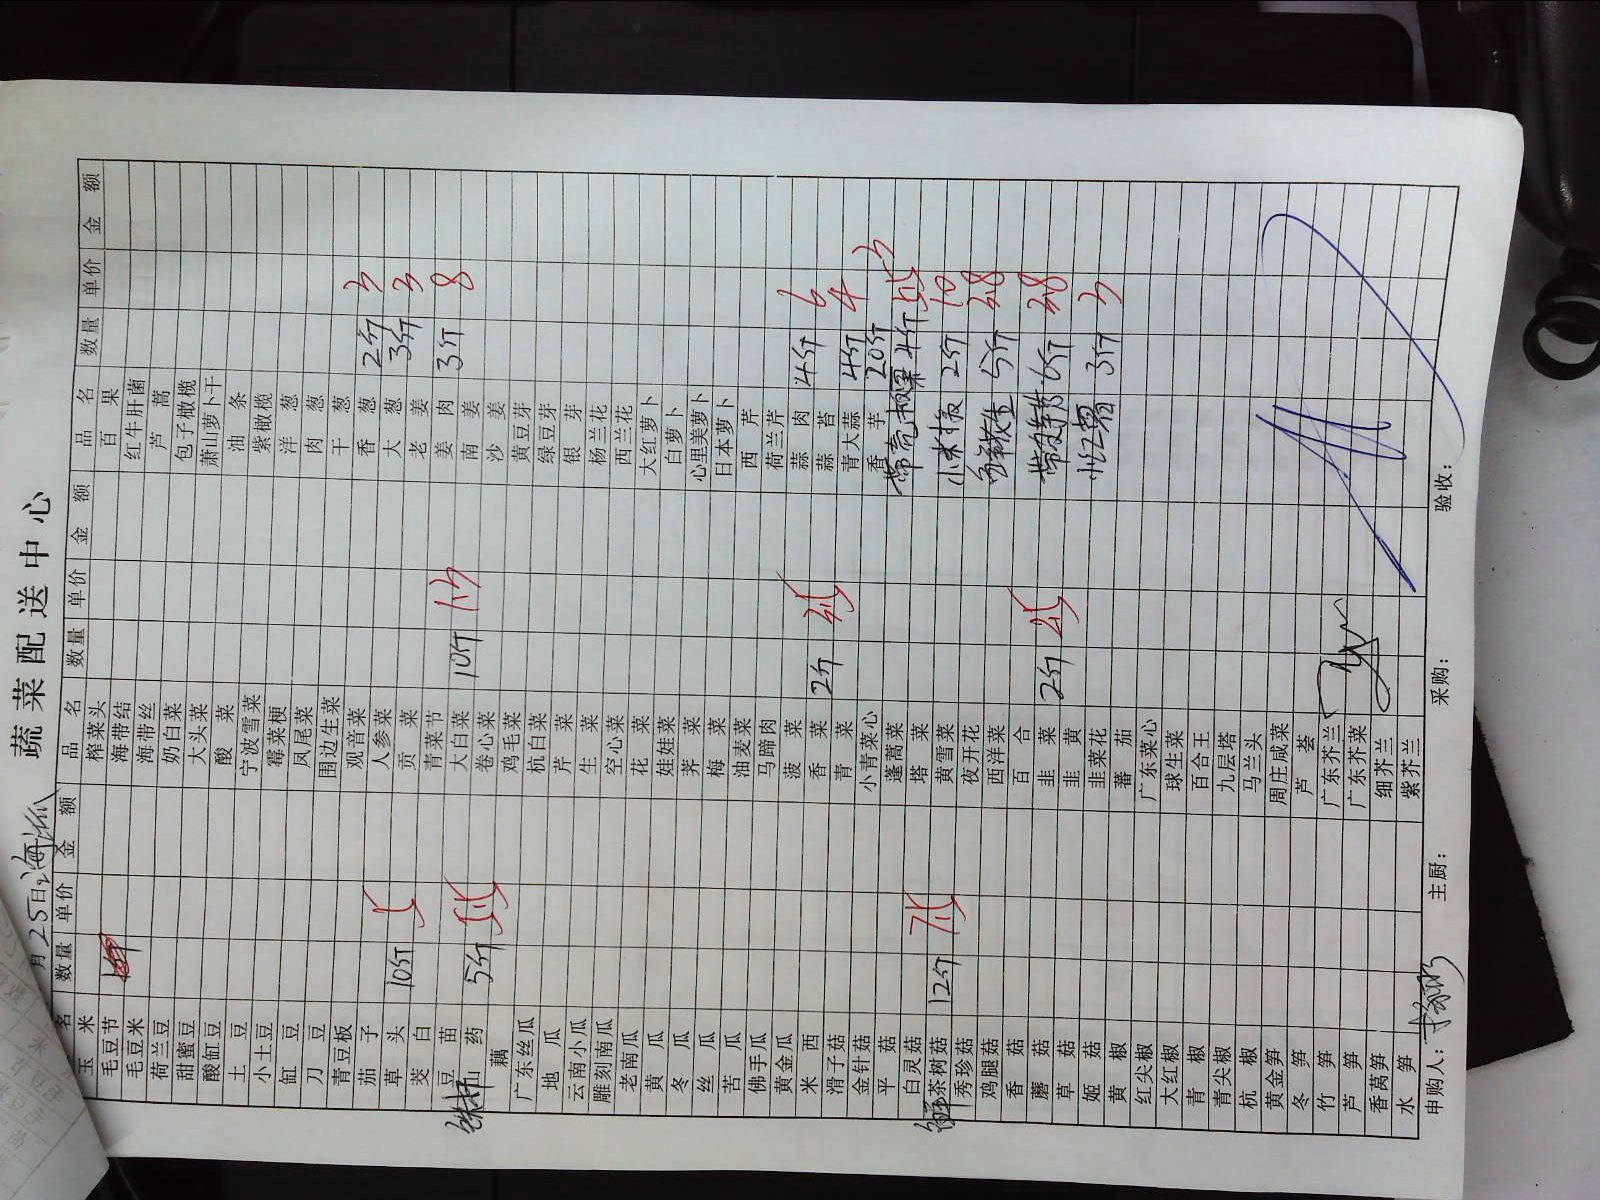 蔬菜配送中心
月25日
名 数量 单价 金额 品名 数量 单价 金额 品名 数量 单价 金额
玉米 榨菜头 百果
毛豆节 海带结 红牛肝菌
毛豆米 海带丝 芦蒿
荷兰豆 奶白菜 包子橄榄
甜蜜豆 大头菜 萧山萝卜干
酸缸豆 酸菜 油条
土豆 宁波雪菜 紫橄榄
小土豆 霉菜梗 洋葱
缸豆 凤尾菜 肉葱
刀豆 围边生菜 干葱
青豆板 观音菜 香葱 2斤
茄子 人参菜 大葱 3斤 3
草头 10斤 贡菜 老姜
茭白 青菜节 姜肉 3斤 8
豆苗 大白菜 10斤 南姜
铁棍山药 5斤 卷心菜 沙姜
藕 鸡毛菜 黄豆芽
广东丝瓜 杭白菜 绿豆芽
地瓜 芹菜 银芽
云南小瓜 生菜 杨兰花
雕刻南瓜 空心菜 西兰花
老南瓜 花菜 大红萝卜
黄瓜 娃娃菜 白萝卜
冬瓜 荠菜 心里美萝卜
丝瓜 梅菜 日本萝卜
苦瓜 油麦菜 西芹
佛手瓜 马蹄肉 荷兰芹
黄金瓜 菠菜 蒜肉 4斤 6
米西 香菜 2斤 蒜苔
滑子菇 青菜 青大蒜 4斤 4
金针菇 小青菜心 香芋 20斤
平菇 蓬蒿菜 4斤
白灵菇 塔菜
茶树菇 12斤 黄雪菜 小米椒 2斤 10
秀珍菇 夜开花
鸡腿菇 西洋菜 5斤 3.8
香菇 百合
蘑菇 韭菜 2斤 6斤 3.8
草菇 韭黄
姬菇 韭菜花 小红薯 3斤
黄椒 蕃茄
红尖椒 广东菜心
大红椒 球生菜
青椒 百合王
青尖椒 九层塔
杭椒 马兰头
黄金笋 周庄咸菜
冬笋 芦荟
竹笋 广东芥兰
芦笋 广东芥菜
香莴笋 细芥兰
水笋 紫芥兰
申购人： 主厨： 采购： 验收：